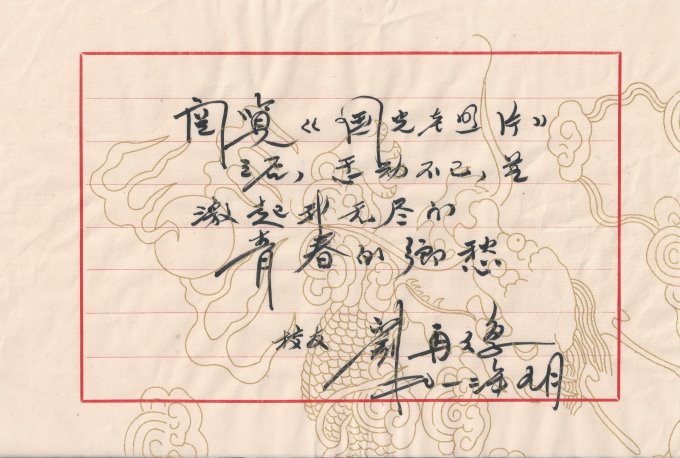 阅览《国光老照片》
之后，感动不已，并
激起我无尽的
青春的鄉愁
校友 劉再复
二〇一三年九月